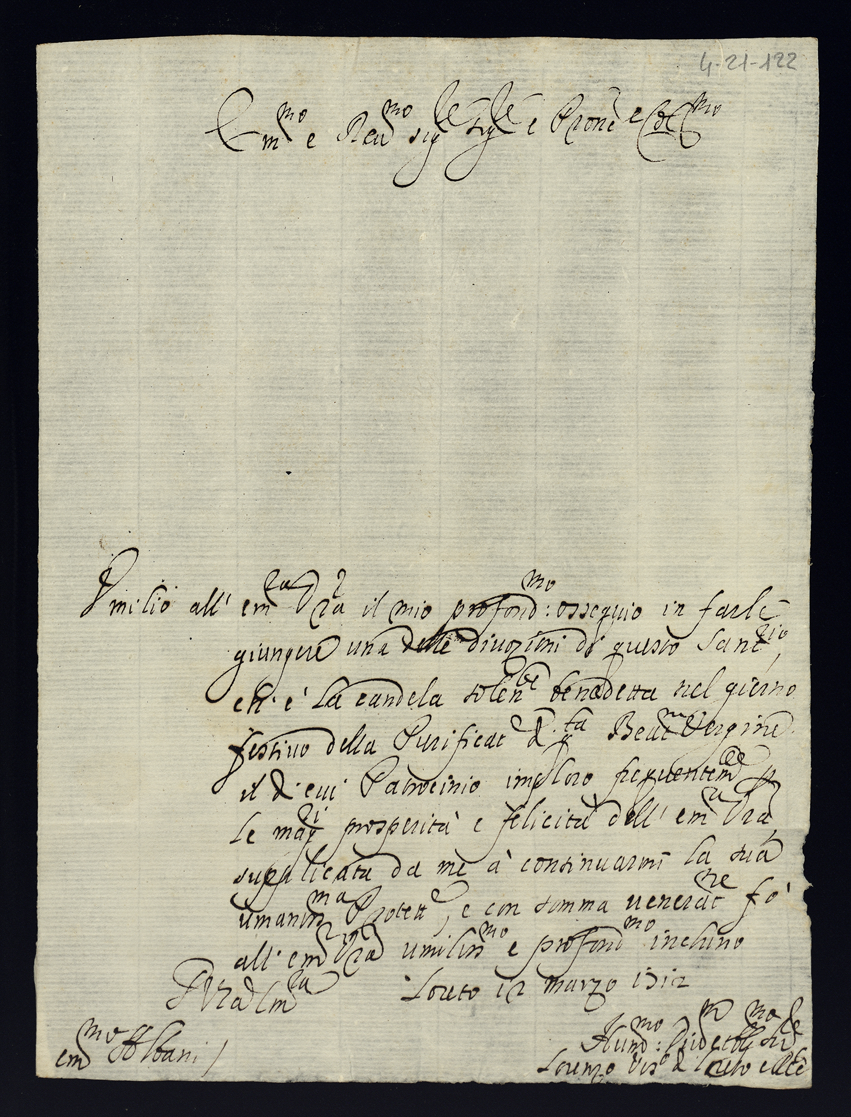 4-21-122
Em.mo e Reu.mo Sig.re Sig.re e Prone e
Vmilio all' em.za Vra il mio profond.mo: ossequio in farle
giungere una delle diuozioni di questo Sant.rio
ch' è la candela solen.te benedetta nel giorno
festiuo della Purificat.e d. Beat.ma Vergine
il di cui Patrocinio imploro frequentem.te p
le mag.ri prosperità e felicità dell' em.za Vra,
supplicata da me à continuarmi la sua
umanis.ma Protett.e, e con somma venerat.ne fò
all' em.za Vra umiliss.mo e profond.mo inchino
D Vra Em.za Loreto 12 marzo 1712
Hum.mo:
em.mo Albani / Lorenzo Vesc.o di Loreto e